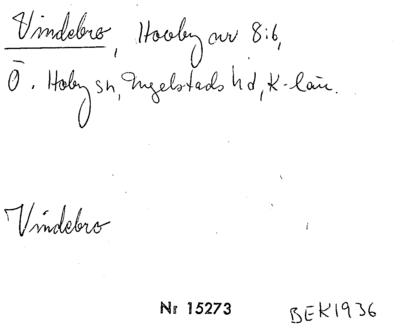 Vindebro, Hooby nr 8:6,
Ö. Hoby sn, Ingelstads hd, K-län.
Vindebro
Nr 15273 BEK1936